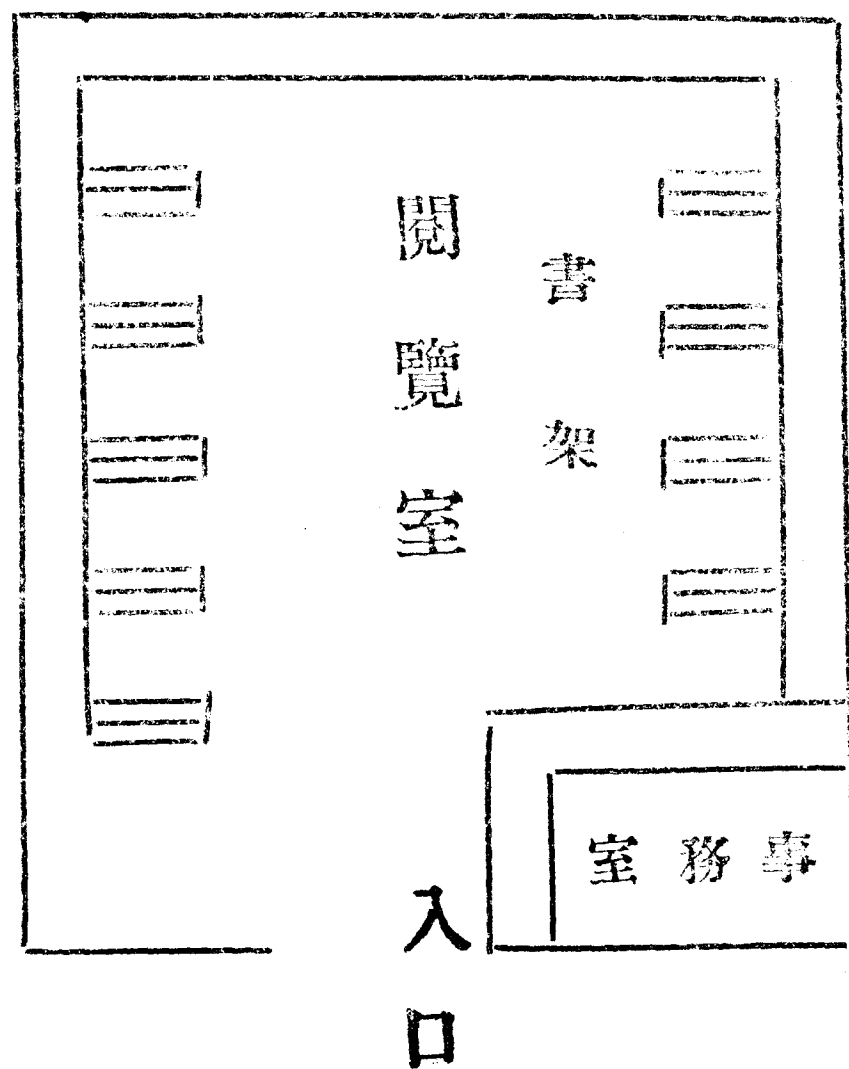 閱覽室
書架
室務事
入口